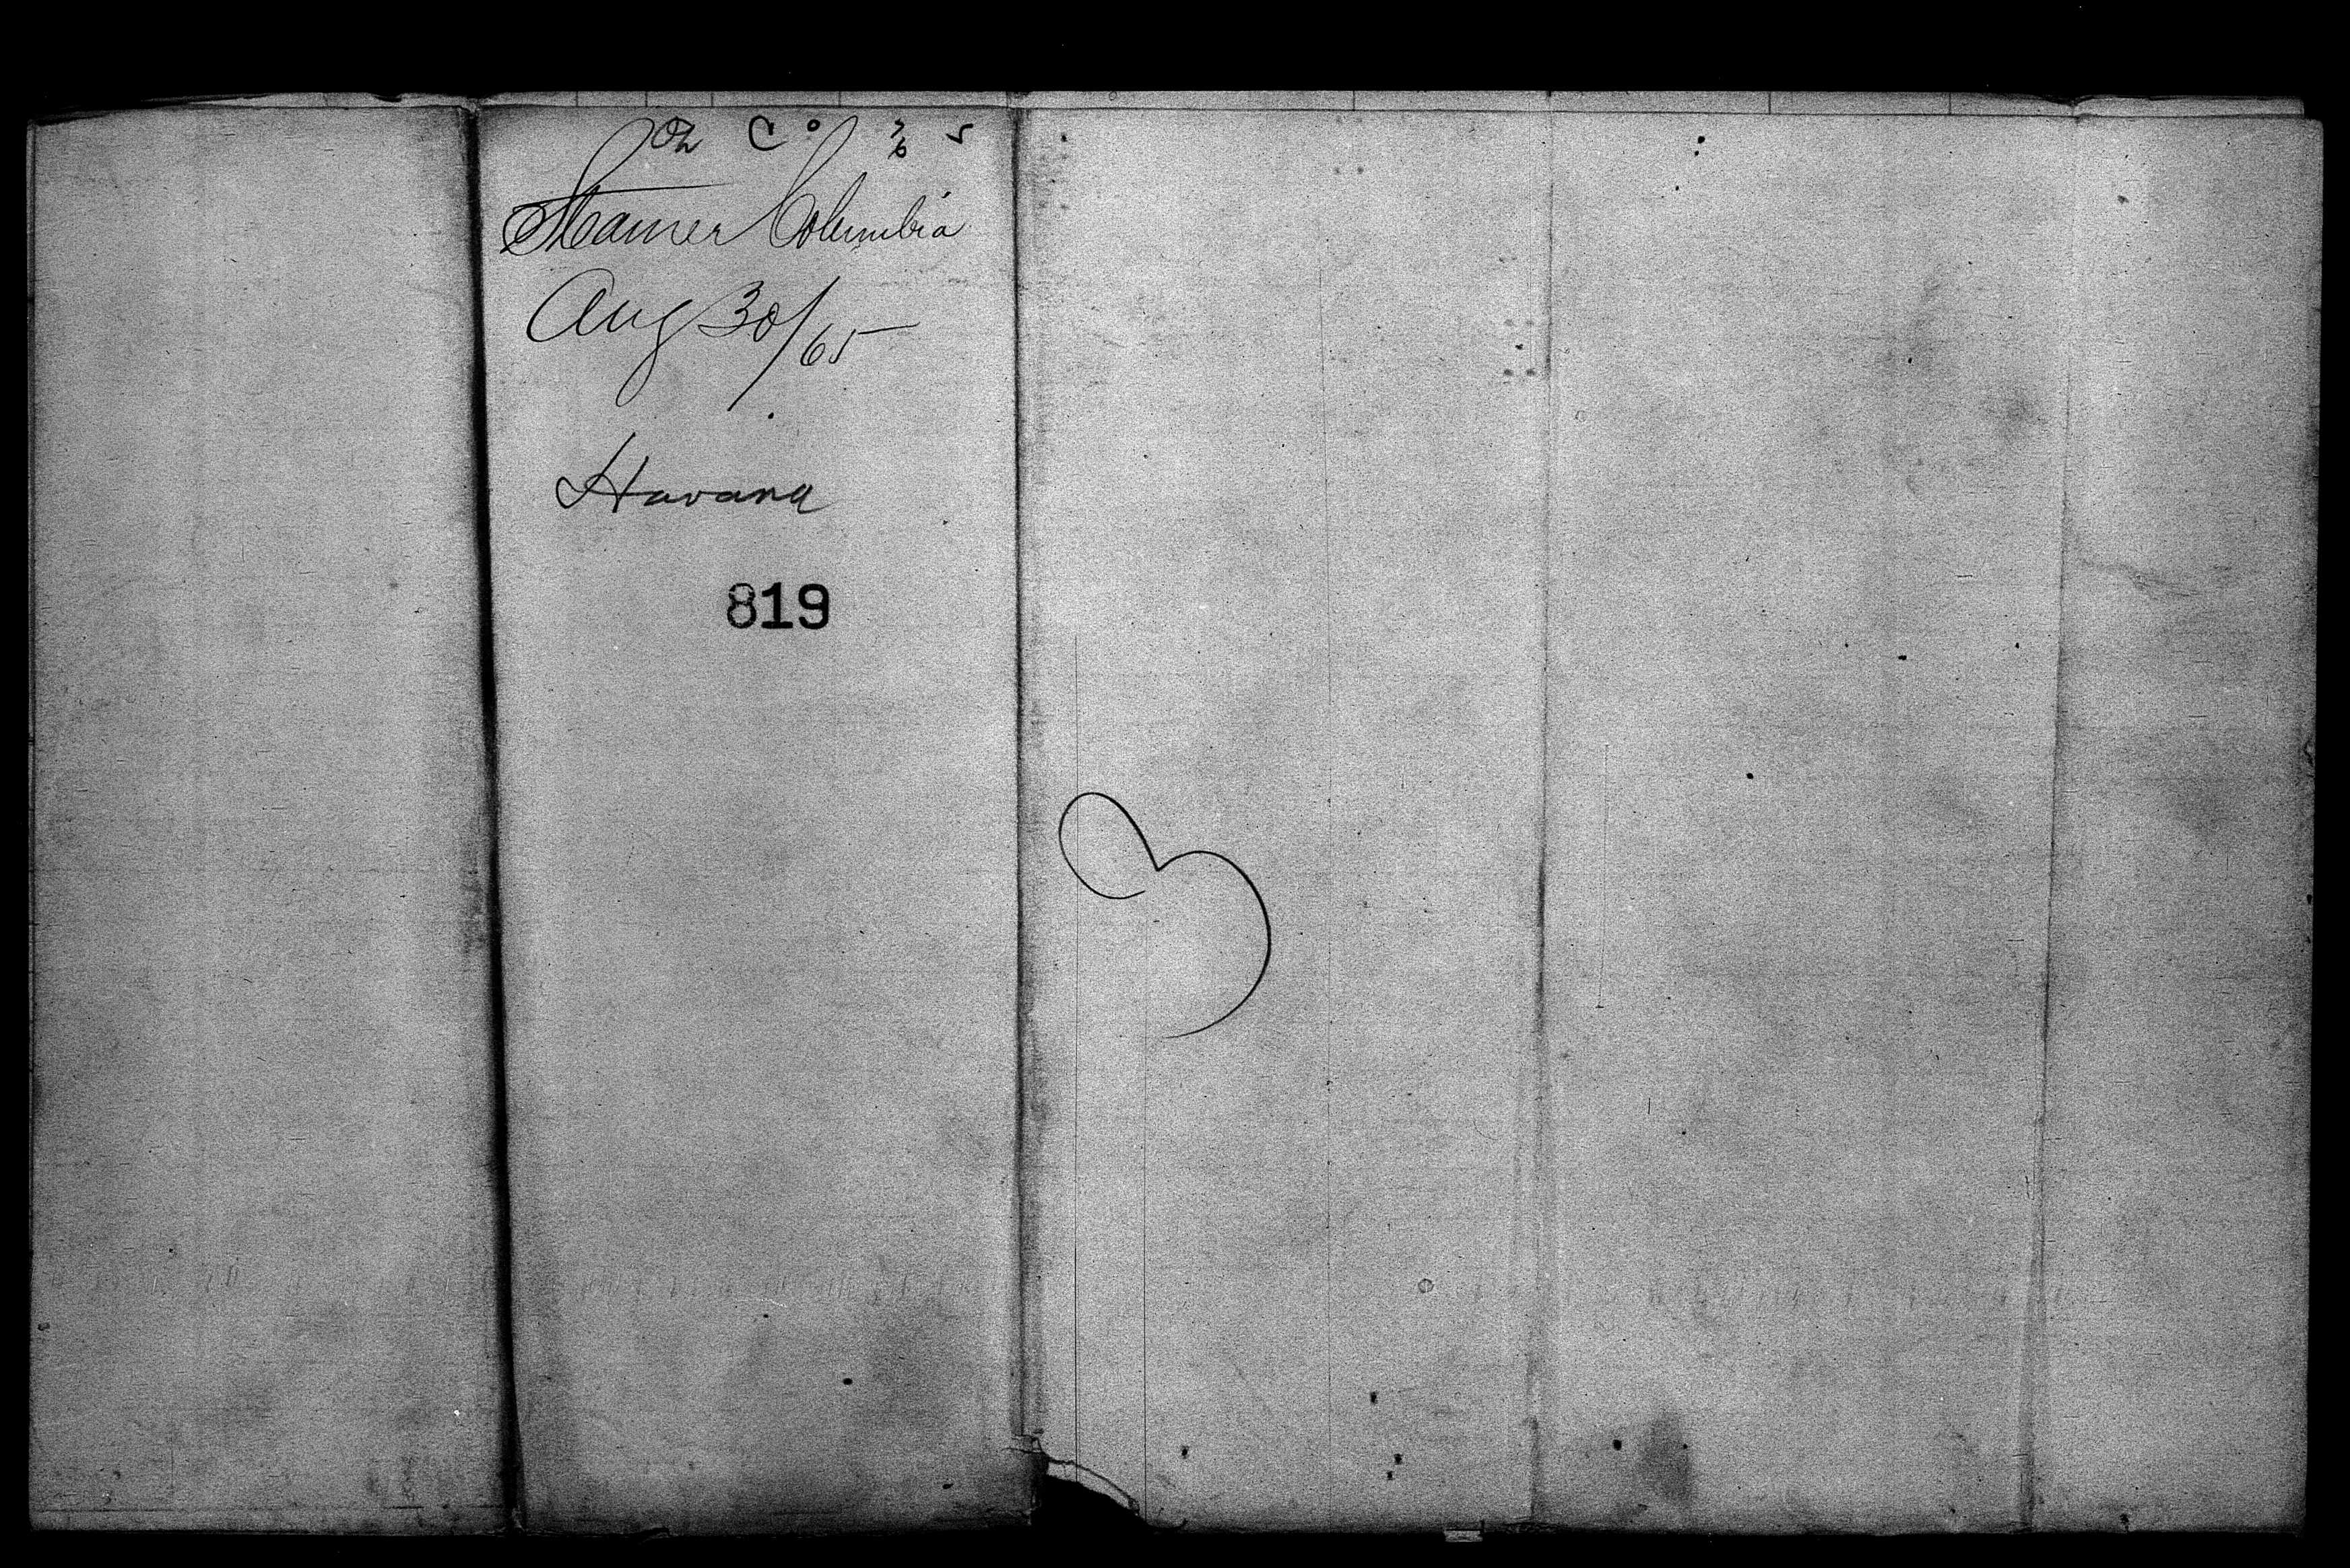 Steamer Columbia
Aug 30/65
Havana
819